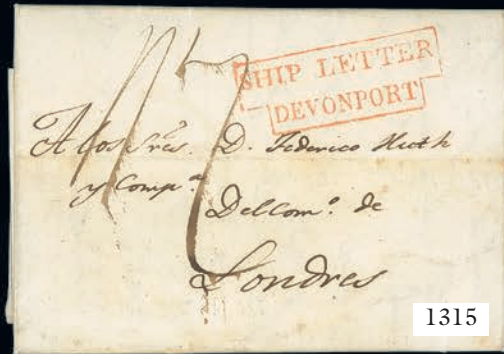 SHIP LETTER
DEVONPORT
A los Sres. D. Federico Huth
y Compa.
Del Como. de
Londres
1315